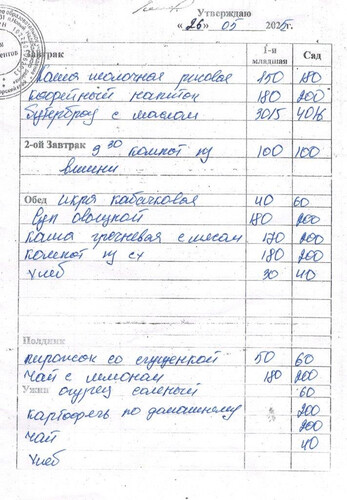 Утверждаю
« 26 » 05 2025г.
Завтрак 1-я младшая Сад
Каша молочная рисовая 150 180
Кофейный напиток 180 200
Бутерброд с маслом 30/5 40/6
2-ой Завтрак 9 30 компот из вишни 100 100
Обед икра кабачковая 40 60
Суп овощной 180 200
Каша гречневая с мясом 170 200
Компот из сх 180 200
Хлеб 30 40
Полдник
Пирожок со сгущенкой 50 60
Чай с лимоном 180 200
Ужин огурец соленый 60
Картофель по домашнему 200
Чай 200
Хлеб 40